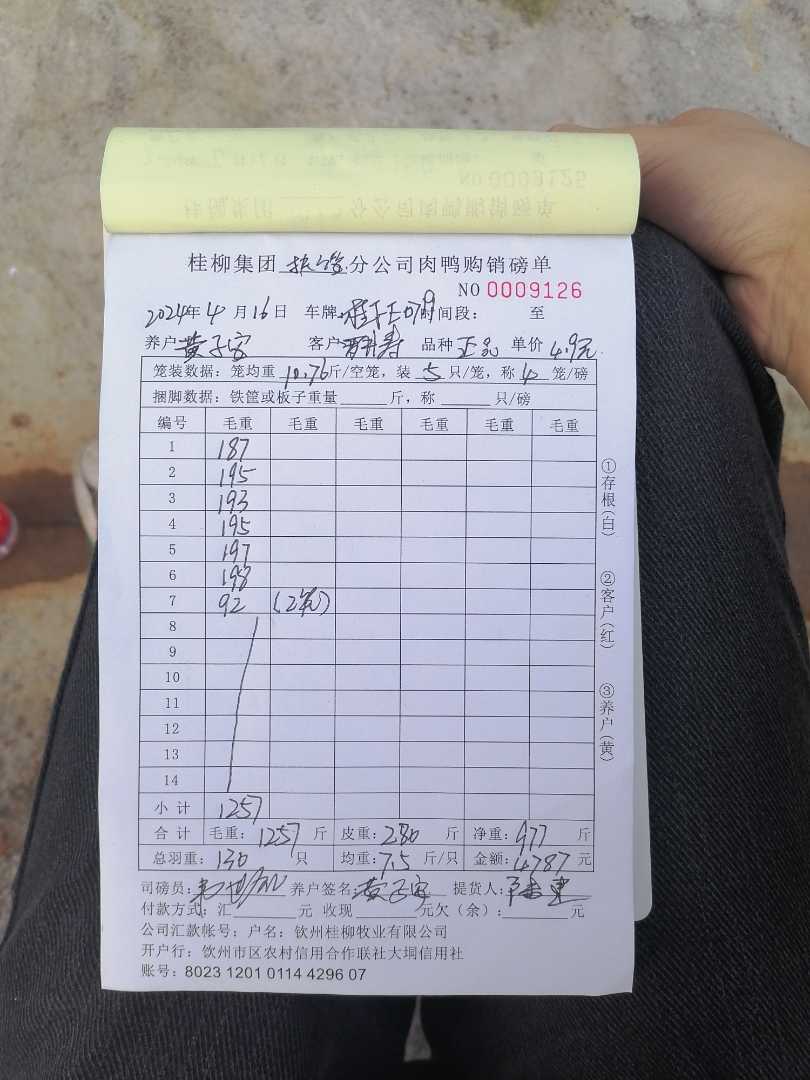 NO 0009125
桂柳集团 分公司肉鸭购销磅单
NO 0009126
2024年 4月 16日 车牌 桂 时间段： 至
养户 黄子容 客户 寿 品种 正品 单价 4.9元
笼装数据：笼均重 10.76 斤/空笼，装 5 只/笼，称 4 笼/磅
捆脚数据：铁筐或板子重量 斤，称 只/磅
编号 毛重 毛重 毛重 毛重 毛重 毛重
1 187
2 195
3 193
4 195
5 197
6 198
7 92 (2笼)
8
9
10
11
12
13
14
小 计 1257
合 计 毛重：1257 斤 皮重：280 斤 净重：977 斤
总羽重：130 只 均重：7.5 斤/只 金额：4787 元
司磅员： 养户签名：黄子容 提货人：
付款方式：汇 元 收现 元欠（余）： 元
公司汇款帐号；户名：钦州桂柳牧业有限公司
开户行：钦州市区农村信用合作联社大垌信用社
账号：8023 1201 0114 4296 07
①存根（白）
②客户（红）
③养户（黄）